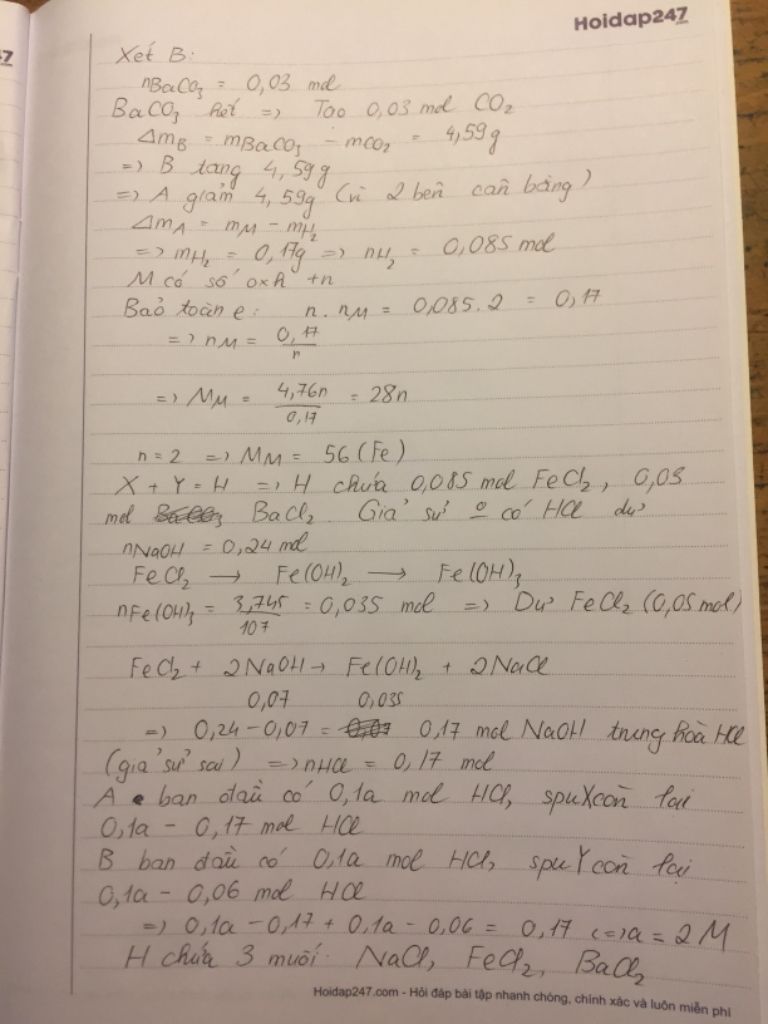 Hoidap247
.com
7
Xét B:
nBaCO₃ = 0,03 mol
BaCO₃ hết => Tạo 0,03 mol CO₂
ΔmB = mBaCO₃ - mCO₂ = 4,59g
=> B tăng 4,59g
=> A giảm 4,59g (vì 2 bên cân bằng)
ΔmA = mM - mH₂
=> mH₂ = 0,17g => nH₂ = 0,085 mol
M có số oxh +n
Bảo toàn e: n.nM = 0,085.2 = 0,17
=> nM = 0,17/n
=> MM = 4,76n/0,17 = 28n
n = 2 => MM = 56 (Fe)
X + Y = H => H chứa 0,085 mol FeCl₂, 0,03
mol BaCl₂. Giả sử o có HCl dư
nNaOH = 0,24 mol
FeCl₂ → Fe(OH)₂ → Fe(OH)₃
nFe(OH)₃ = 3,745/107 = 0,035 mol => Dư FeCl₂ (0,05 mol)
FeCl₂ + 2NaOH → Fe(OH)₂ + 2NaCl
0,07 0,035
=> 0,24 - 0,07 = 0,17 mol NaOH trung hoà HCl
(giả sử sai) => nHCl = 0,17 mol
A ban đầu có 0,1a mol HCl, spuX còn lại
0,1a - 0,17 mol HCl
B ban đầu có 0,1a mol HCl, spuY còn lại
0,1a - 0,06 mol HCl
=> 0,1a - 0,17 + 0,1a - 0,06 = 0,17 <=> a = 2M
H chứa 3 muối: NaCl, FeCl₂, BaCl₂
Hoidap247.com - Hỏi đáp bài tập nhanh chóng, chính xác và luôn miễn phí